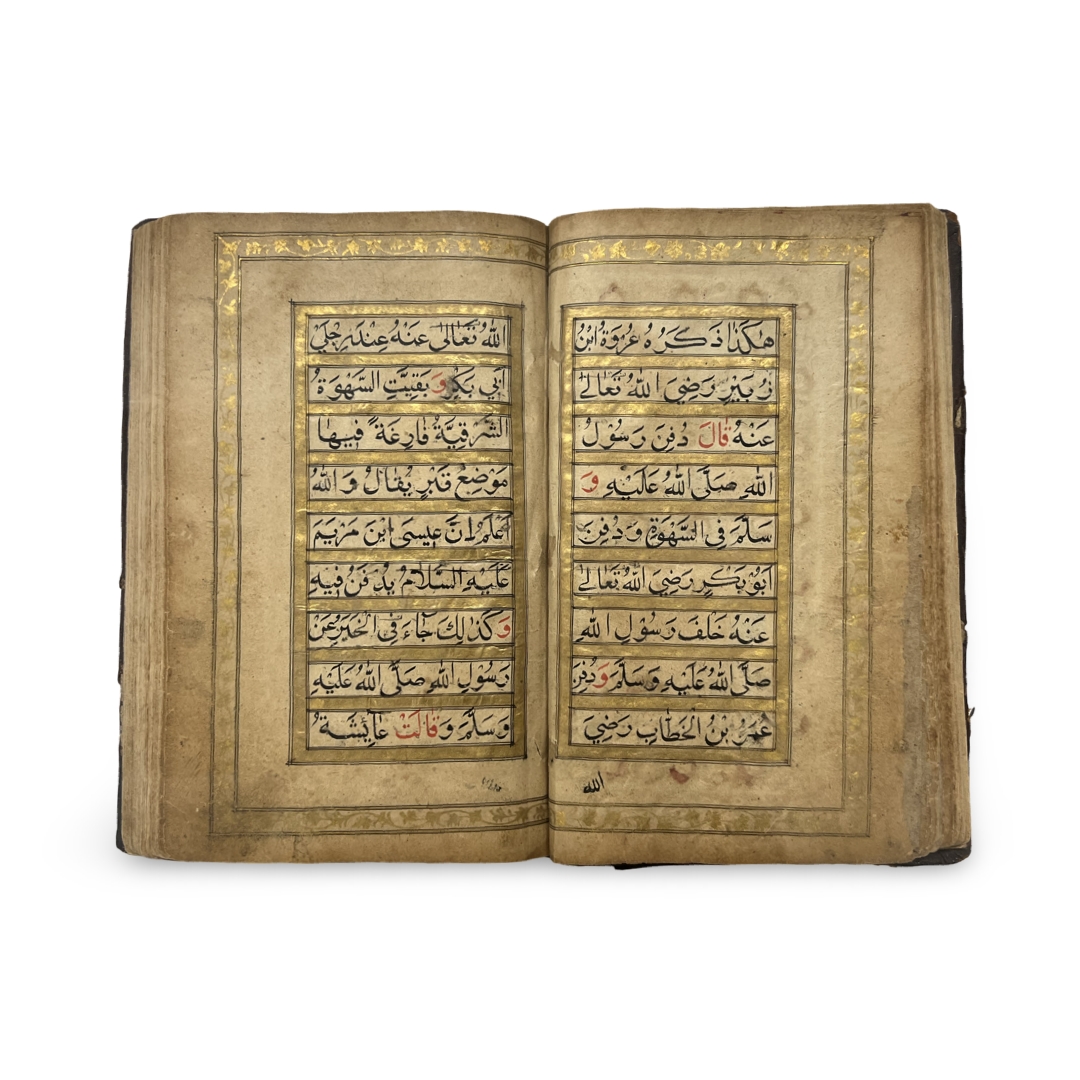 هٰكَذَا ذَكَرَهُ عُرْوَةُ ابْنُ
زُبَيْرٍ رَضِيَ اللهُ تَعَالٰى
عَنْهُ قَالَ دُفِنَ رَسُوْلُ
اللهِ صَلَّى اللهُ عَلَيْهِ وَ
سَلَّمَ فِي السَّهْوَةِ وَدُفِنَ
اَبُوْ بَكْرٍ رَضِيَ اللهُ تَعَالٰى
عَنْهُ خَلْفَ رَسُوْلِ اللهِ
صَلَّى اللهُ عَلَيْهِ وَسَلَّمَ وَدُفِنَ
عُمَرُ بْنُ الْخَطَّابِ رَضِيَ
الله
اللهُ تَعَالٰى عَنْهُ عِنْدَ رِجْلَيْ
اَبِيْ بَكْرٍ وَ بَقِيَتِ السَّهْوَةُ
الشَّرْقِيَّةُ فَارِغَةً فِيْهَا
مَوْضِعُ قَبْرٍ يُقَالُ وَاللهُ
اَعْلَمُ اِنَّ عِيْسَى ابْنَ مَرْيَمَ
عَلَيْهِ السَّلَامُ يُدْفَنُ فِيْهِ
وَكَذٰلِكَ جَاءَ فِي الْخَبَرِ عَنْ
رَسُوْلِ اللهِ صَلَّى اللهُ عَلَيْهِ
وَسَلَّمَ وَقَالَتْ عَائِشَةُ